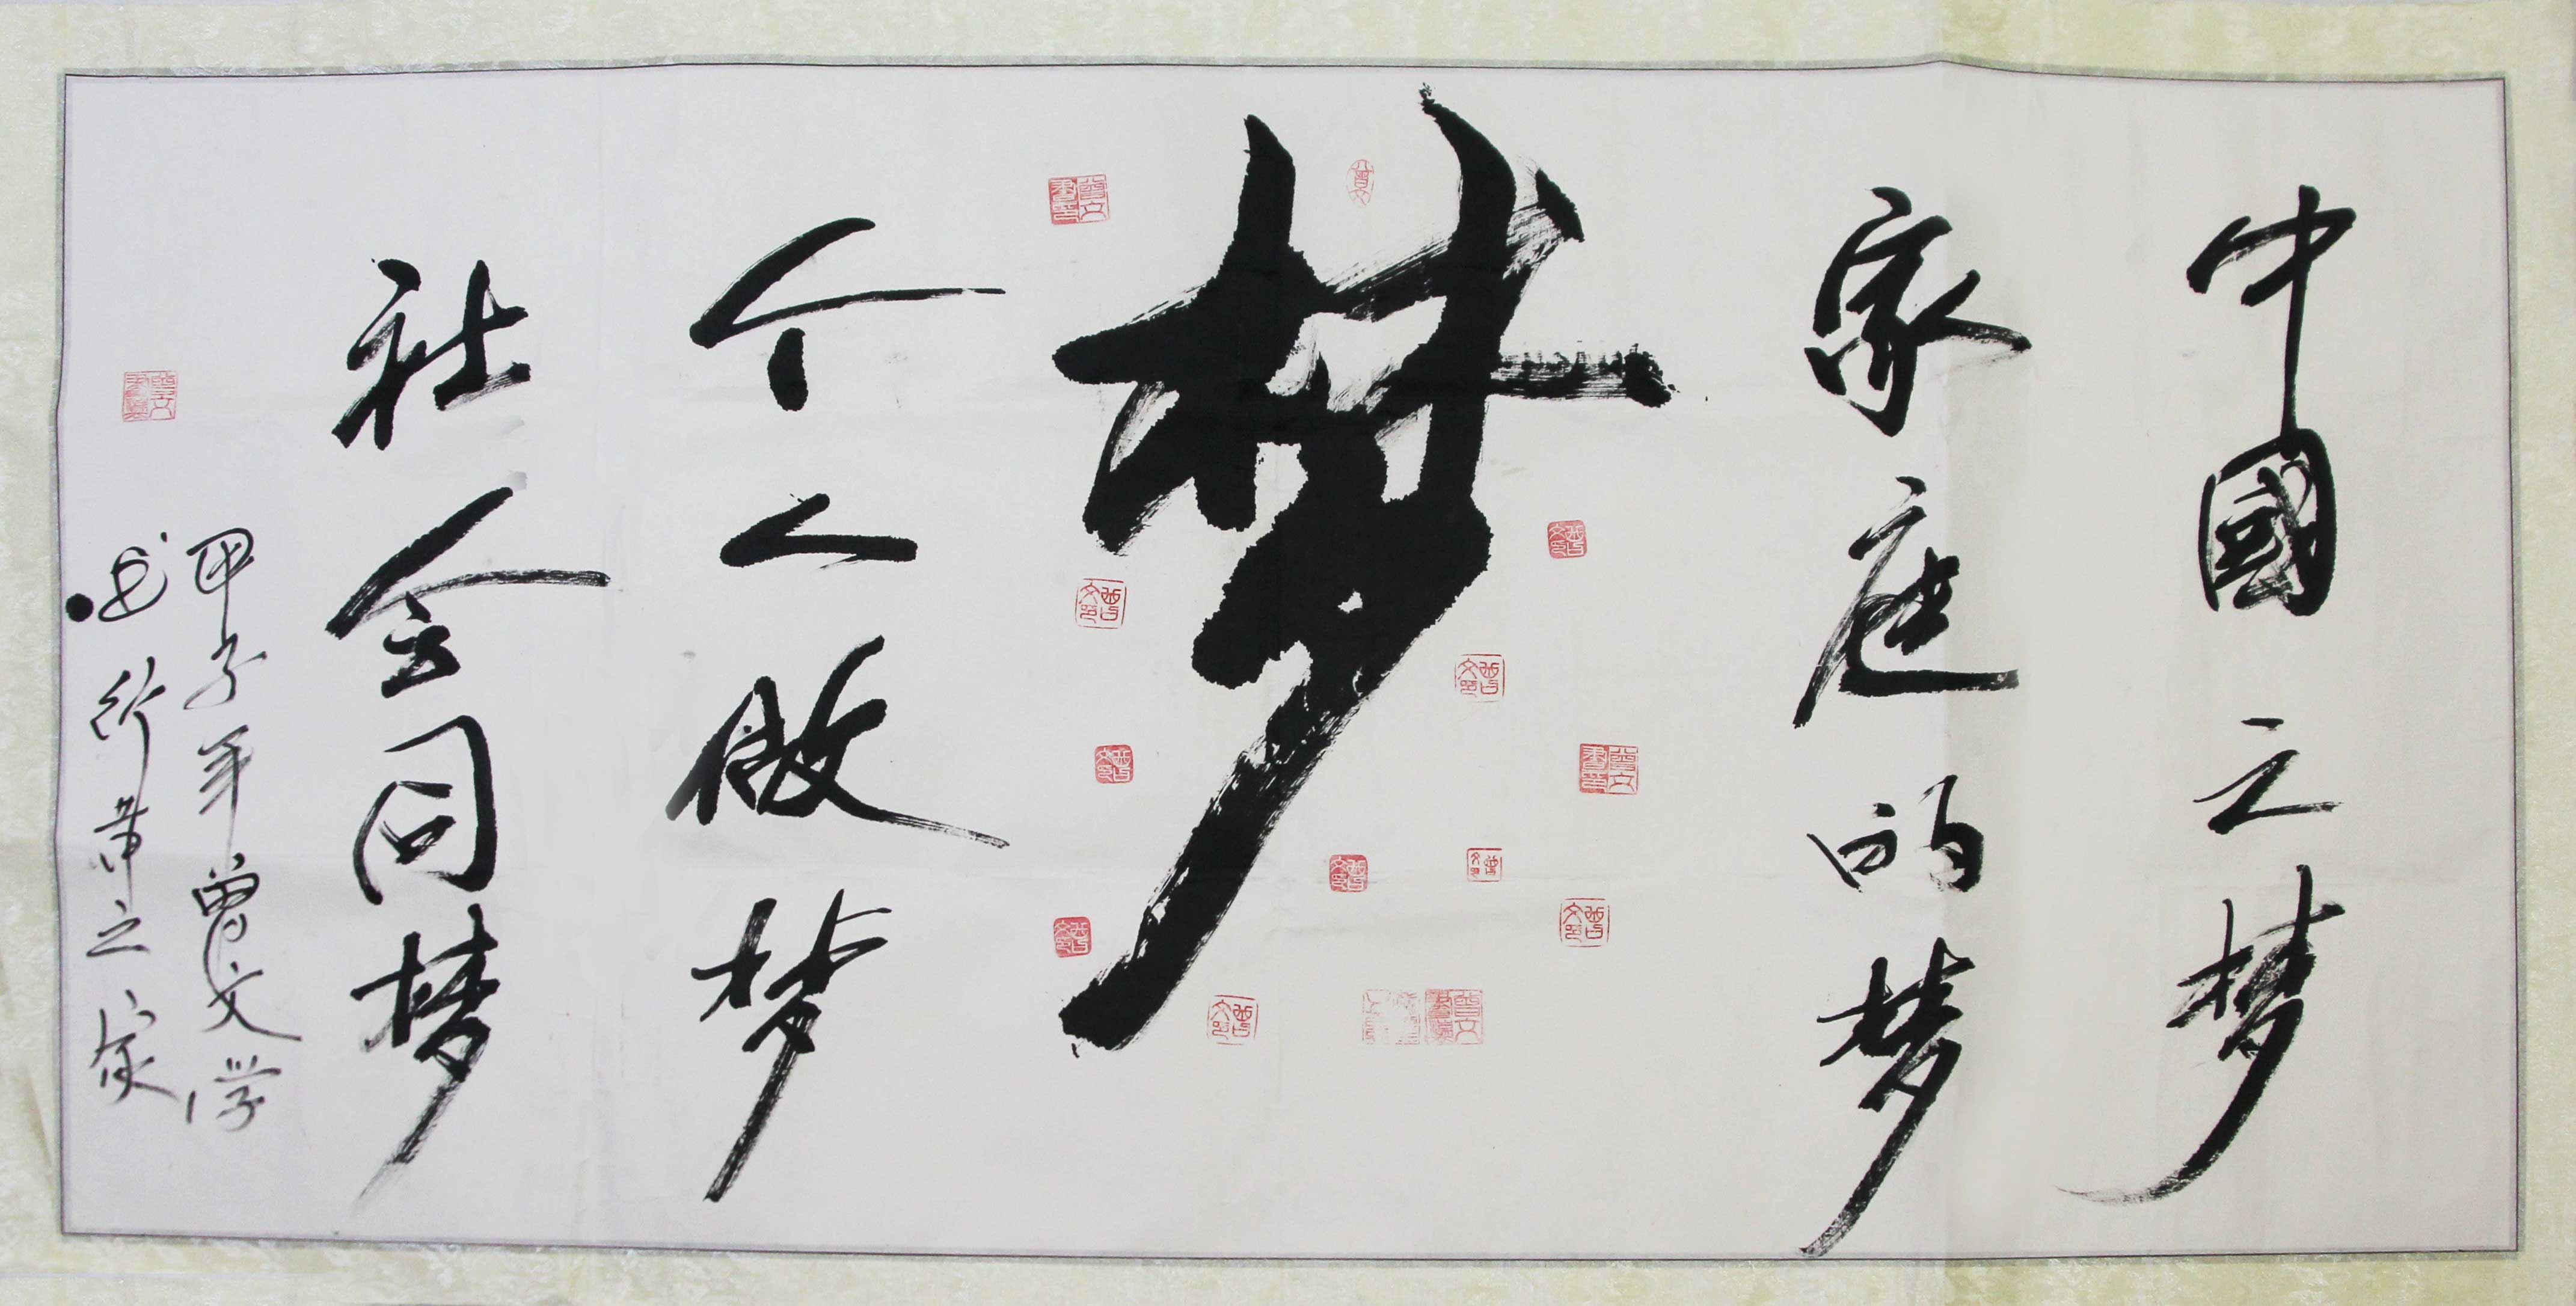 中國之梦
家庭的梦
梦
个人做梦
社会同梦
甲子年曾文学
之家